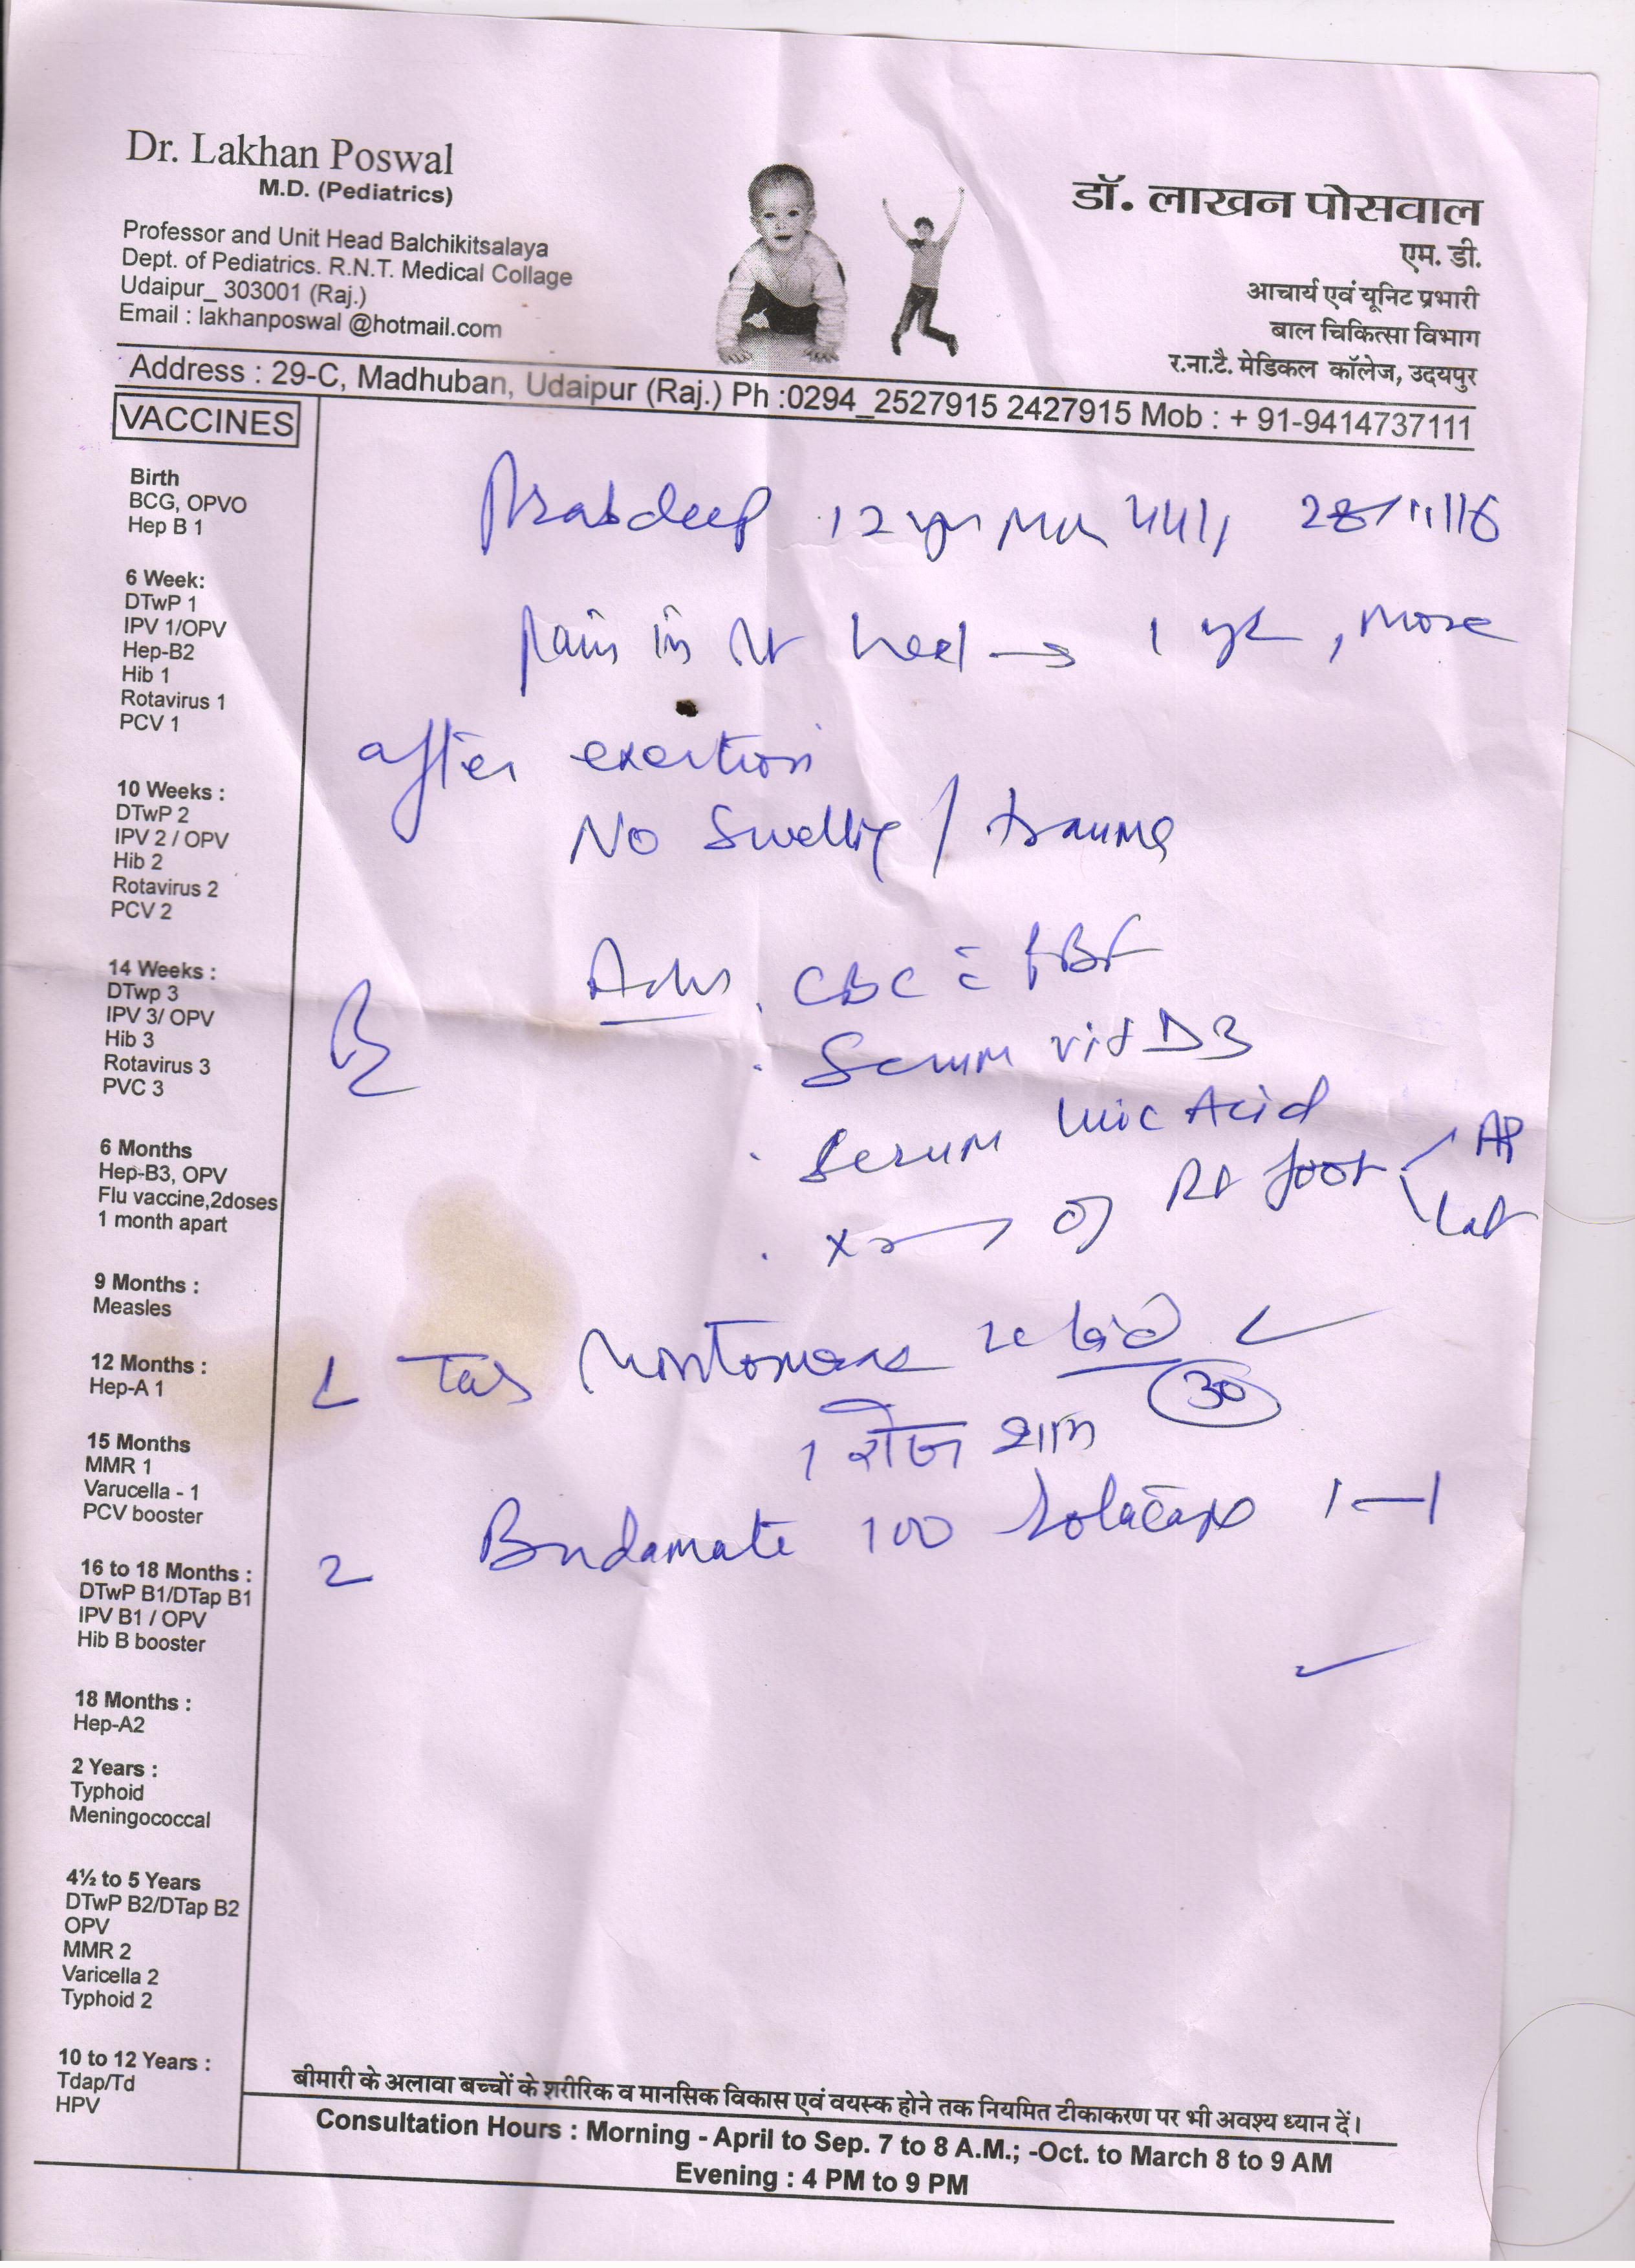 Dr. Lakhan Poswal
M.D. (Pediatrics)
Professor and Unit Head Balchikitsalaya
Dept. of Pediatrics. R.N.T. Medical Collage
Udaipur_ 303001 (Raj.)
Email : lakhanposwal @hotmail.com
डॉ. लाखन पोसवाल
एम. डी.
आचार्य एवं यूनिट प्रभारी
बाल चिकित्सा विभाग
र.ना.टै. मेडिकल कॉलेज, उदयपुर
Address : 29-C, Madhuban, Udaipur (Raj.) Ph :0294_2527915 2427915 Mob : + 91-9414737111
VACCINES
Birth
BCG, OPVO
Hep B 1
6 Week:
DTwP 1
IPV 1/OPV
Hep-B2
Hib 1
Rotavirus 1
PCV 1
10 Weeks :
DTwP 2
IPV 2 / OPV
Hib 2
Rotavirus 2
PCV 2
14 Weeks :
DTwp 3
IPV 3/ OPV
Hib 3
Rotavirus 3
PVC 3
6 Months
Hep-B3, OPV
Flu vaccine,2doses
1 month apart
9 Months :
Measles
12 Months :
Hep-A 1
15 Months
MMR 1
Varucella - 1
PCV booster
16 to 18 Months :
DTwP B1/DTap B1
IPV B1 / OPV
Hib B booster
18 Months :
Hep-A2
2 Years :
Typhoid
Meningococcal
4½ to 5 Years
DTwP B2/DTap B2
OPV
MMR 2
Varicella 2
Typhoid 2
10 to 12 Years :
Tdap/Td
HPV
12 yr 28/11/16
Pain in Rt heel → 1 yr, more
after exertion
No Swelling / trauma
Adv. CBC c̄ PBF
Rx
. Serum vit D3
. Serum Uric Acid
. X-ray of Rt foot < AP
Lat
1 Tab
30
1 रोज शाम
2 Budamate 100 Rotacaps 1—1
बीमारी के अलावा बच्चों के शरीरिक व मानसिक विकास एवं वयस्क होने तक नियमित टीकाकरण पर भी अवश्य ध्यान दें।
Consultation Hours : Morning - April to Sep. 7 to 8 A.M.; -Oct. to March 8 to 9 AM
Evening : 4 PM to 9 PM